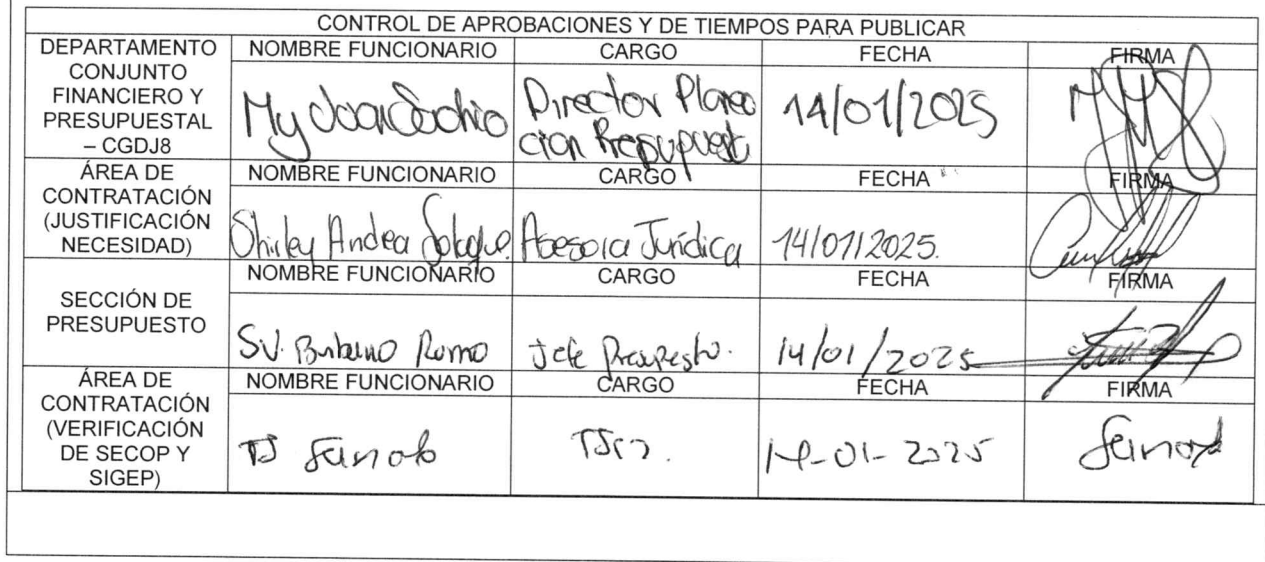 CONTROL DE APROBACIONES Y DE TIEMPOS PARA PUBLICAR
DEPARTAMENTO CONJUNTO FINANCIERO Y PRESUPUESTAL – CGDJ8
NOMBRE FUNCIONARIO CARGO FECHA FIRMA
My Director Planea
cion 14/01/2025
ÁREA DE CONTRATACIÓN (JUSTIFICACIÓN NECESIDAD)
NOMBRE FUNCIONARIO CARGO FECHA FIRMA
Shirley Andrea Asesora Jurídica 14/01/2025.
SECCIÓN DE PRESUPUESTO
NOMBRE FUNCIONARIO CARGO FECHA FIRMA
SV. Burbano Romo Jefe Presupesto. 14/01/2025
ÁREA DE CONTRATACIÓN (VERIFICACIÓN DE SECOP Y SIGEP)
NOMBRE FUNCIONARIO CARGO FECHA FIRMA
TS 14-01-2025